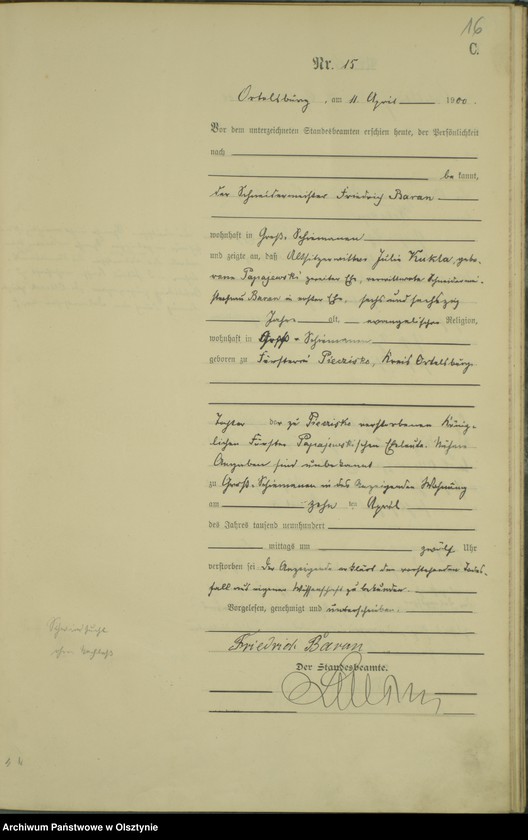 16
C.
Nr. 15
Ortelsburg, am 11. April 1900.
Vor dem unterzeichneten Standesbeamten erschien heute, der Persönlichkeit
nach
be kannt,
der Schneidermeister Friedrich Baran
wohnhaft in Groß-Schiemanen
und zeigte an, daß Altsitzerwittwe Julie Kukla, gebo-
rene Paprajewski zweiter Ehe, verwittwete Schneidermei-
Baran in erster Ehe, sechs und sechszig
Jahre alt, evangelischer Religion,
wohnhaft in Groß-Schiemanen
geboren zu Försterei Pieczisko, Kreis Ortelsburg
Tochter der zu Pieczisko verstorbenen König-
lichen Förster Eheleute. Nähere
Angaben sind unbekannt
zu Groß-Schiemanen in des Anzeigenden Wohnung
am zehn ten April
des Jahres tausend neunhundert
mittags um zwölf Uhr
verstorben sei. Der Anzeigende erklärt den vorstehenden Todes-
fall aus eigener Wissenschaft zu bekunden.
Vorgelesen, genehmigt und unterschrieben.
Friedrich Baran
Der Standesbeamte.
Schwindsucht
Archiwum Państwowe w Olsztynie